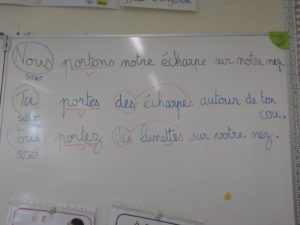 Nous portons notre écharpe sur notre nez.
SUJET
Tu portes des écharpes autour de ton
cou.
SUJET
Vous portez des lunettes sur votre nez.
SUJET